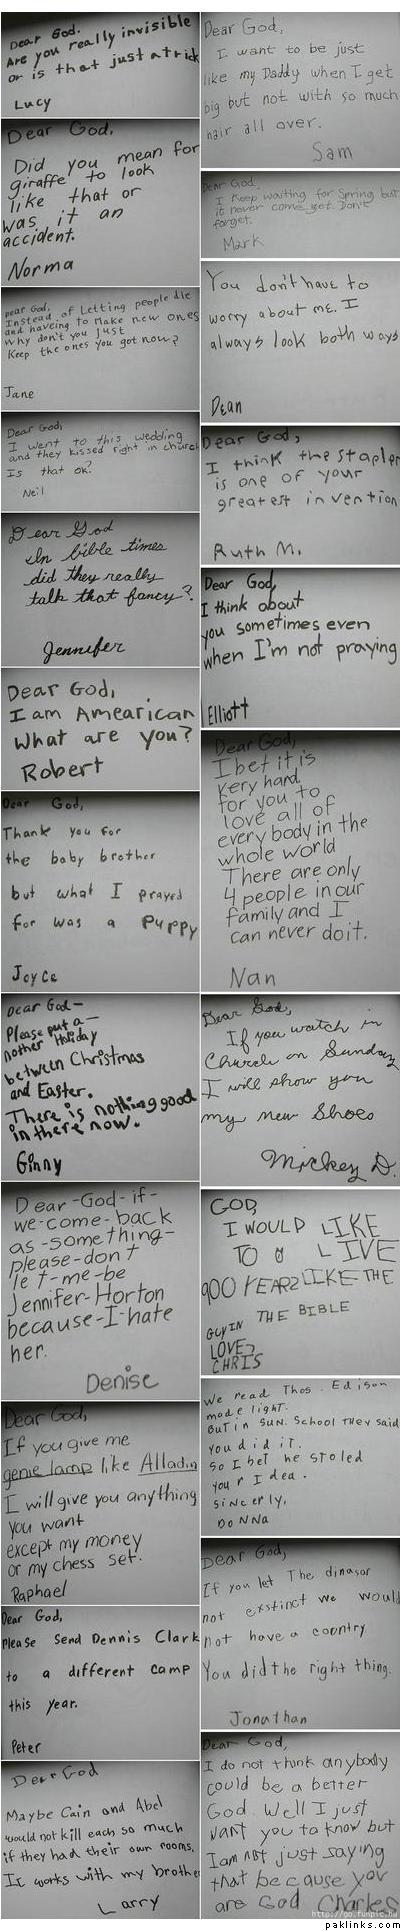 Dear God.
Are you really invisible
or is that just a trick
Lucy
Dear God,
Did you mean for
giraffe to look
like that or
was it an
accident.
Norma
Dear God,
Instead of Letting people die
and haveing to Make new ones
why don't you Just
Keep the ones you got now?
Jane
Dear God,
I went to this wedding
and they kissed right in church
Is that ok?
Neil
Dear God
In bible times
did they really
talk that fancy?
Jennifer
Dear God,
I am Amearican
What are you?
Robert
Dear God,
Thank you for
the baby brother
but what I prayed
for was a Puppy
Joyce
Dear God—
Please put a—
nother Holiday
between Christmas
and Easter.
There is nothing good
in there now.
Ginny
Dear-God-if-
we-come-back
as-something-
please-don't
let-me-be
Jennifer-Horton
because-I-hate
her.
Denise
Dear God,
If you give me
genie lamp like Alladin
I will give you anything
you want
except my money
or my chess set.
Raphael
Dear God,
Please Send Dennis Clark
to a different camp
this year.
Peter
Dear God
Maybe Cain and Abel
would not kill each so much
if they had their own rooms.
It works with my brother
Larry
Dear God,
I want to be just
like my Daddy when I get
big but not with so much
hair all over.
Sam
Dear God,
I Keep waiting for Spring but
it never come yet. Don't
forget.
Mark
You don't have to
worry about me. I
always look both ways
Dean
Dear God,
I think the stapler
is one of your
greatest invention
Ruth M.
Dear God,
I think about
you sometimes even
when I'm not praying
Elliott
Dear God,
I bet it is
very hard
for you to
love all of
everybody in the
whole world
There are only
4 people in our
family and I
can never do it.
Nan
Dear God,
If you watch in
Church on Sunday
I will show you
my new Shoes
Mickey D.
GOD,
I WOULD LIKE
TO LIVE
900 YEARS LIKE THE
GUY IN THE BIBLE
LOVE,
CHRIS
We read Thos. Edison
made light.
But in Sun. School they said
you did it.
So I bet he stoled
your Idea.
Sincerly,
Donna
Dear God,
If you let The dinasor
not exstinct we would
not have a country
You did the right thing.
Jonathan
Dear God,
I do not think anybody
could be a better
God. Well I just
want you to know but
I am not just saying
that because you
are God Charles
http://go.funpic.hu
paklinks.com